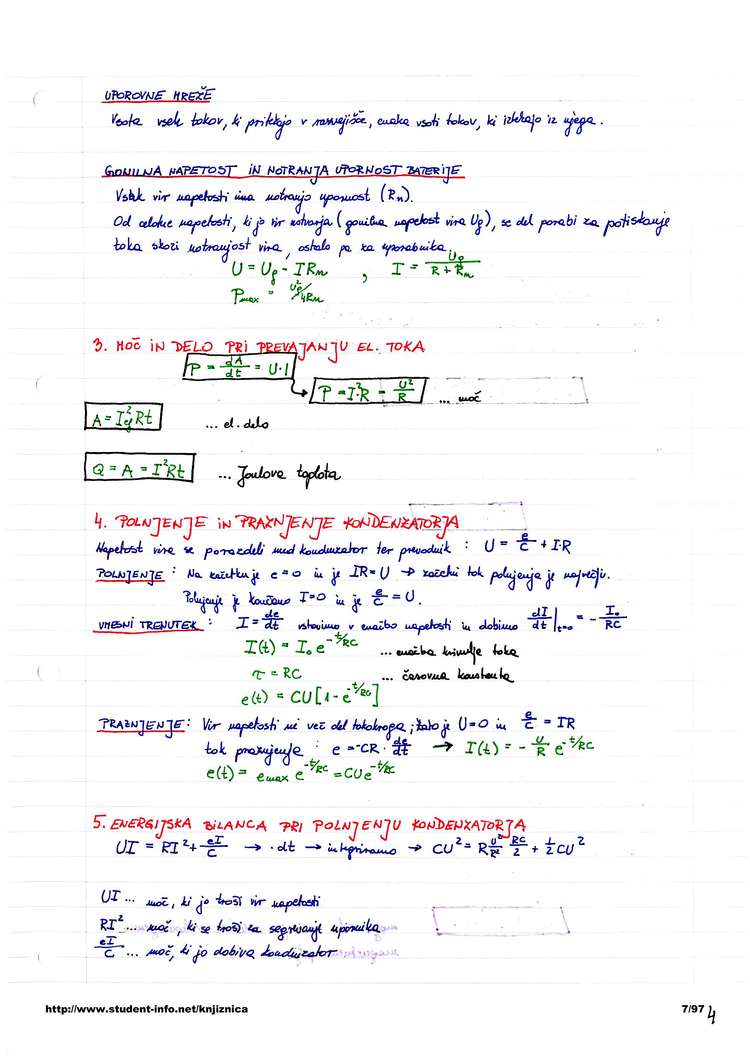 UPOROVNE MREŽE
Vsota vseh tokov, ki pritekajo v razvejišče, enaka vsoti tokov, ki iztekajo iz njega.
GONILNA NAPETOST IN NOTRANJA UPORNOST BATERIJE
Vsak vir napetosti ima notranjo upornost (Rn).
Od celotne napetosti, ki jo vir ustvarja (gonilna napetost vira Ug), se del porabi za potiskanje
toka skozi notranjost vira, ostalo pa za uporabnika.
U = Ug - IRn , I = Ug / (R + Rn)
Pmax = Ug²/4Rn
3. MOČ IN DELO PRI PREVAJANJU EL. TOKA
P = dA/dt = U·I
P = I²·R = U²/R ... moč
A = I²ef Rt ... el. delo
Q = A = I²Rt ... Joulova toplota
4. POLNJENJE IN PRAZNJENJE KONDENZATORJA
Napetost vira se porazdeli med kondenzator ter prevodnik : U = e/C + I·R
POLNJENJE : Na začetku je e = 0 in je IR = U → začetni tok polnjenja je največji.
Polnjenje je končano I=0 in je e/C = U.
VMESNI TRENUTEK : I = de/dt vstavimo v enačbo napetosti in dobimo dI/dt |t=0 = - I₀/RC
I(t) = I₀ e^-t/RC ... enačba krivulje toka
τ = RC ... časovna konstanta
e(t) = CU[1 - e^-t/RC]
PRAZNJENJE : Vir napetosti ni več del tokokroga ; zato je U=0 in e/C = IR
tok praznjenja : e = -CR · de/dt → I(t) = - U/R e^-t/RC
e(t) = emax e^-t/RC = CUe^-t/RC
5. ENERGIJSKA BILANCA PRI POLNJENJU KONDENZATORJA
UI = RI² + eI/C → ·dt → integriramo → CU² = R U²/R² RC/2 + 1/2 CU²
UI ... moč, ki jo troši vir napetosti
RI² ... moč, ki se troši za segrevanje upornika
eI/C ... moč, ki jo dobiva kondenzator
http://www.student-info.net/knjiznica 7/97 4